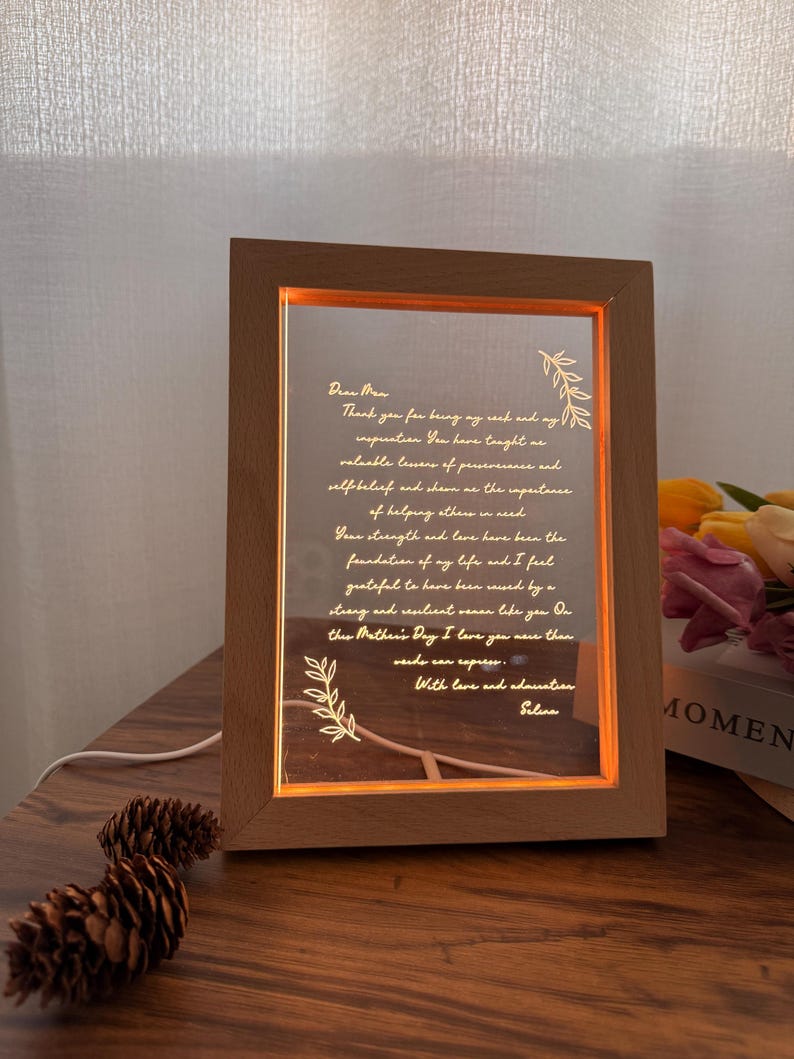 Dear Mom
Thank you for being my rock and my
inspiration You have taught me
valuable lessons of perseverance and
self-belief and shown me the importance
of helping others in need
Your strength and love have been the
foundation of my life and I feel
grateful to have been raised by a
strong and resilient woman like you On
this Mother's Day I love you more than
words can express.
With love and admiration
Selina
MOMEN